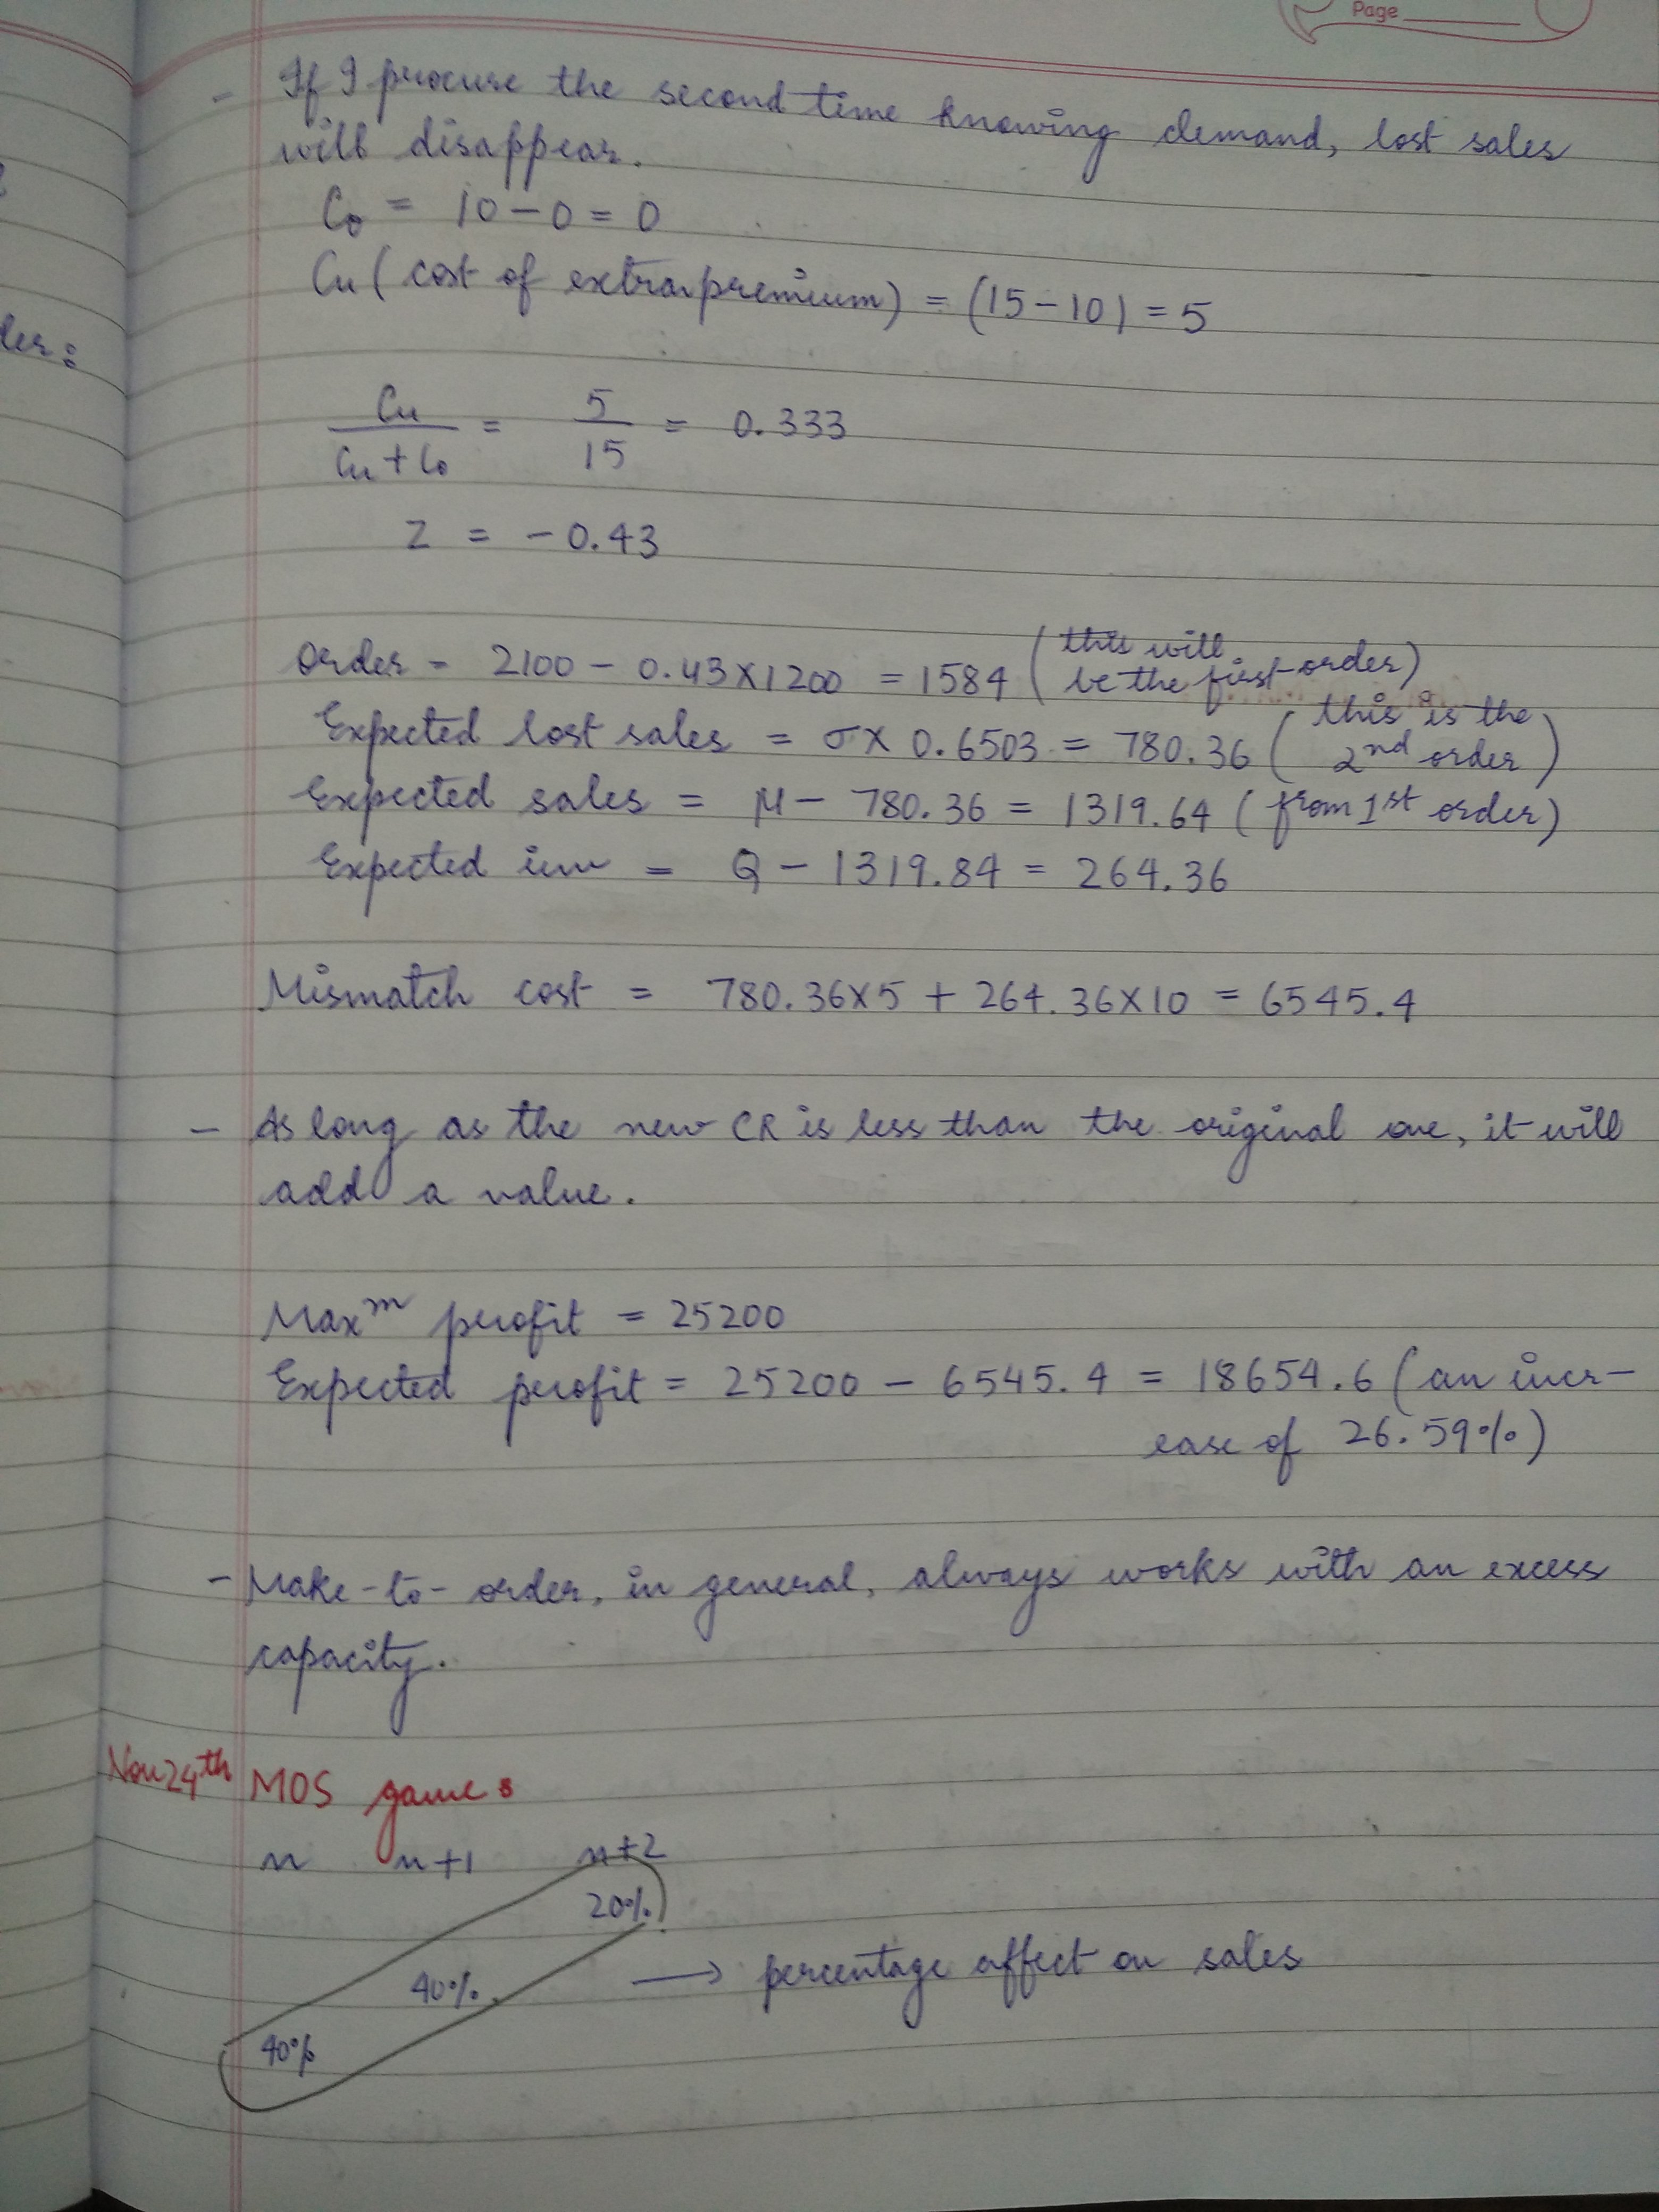 Page
- If I procure the second time knowing demand, lost sales
will disappear.
Co = 10 - 0 = 0
Cu (cost of extra premium) = (15 - 10) = 5
Cu / Cu + Co = 5 / 15 = 0.333
Z = - 0.43
Order = 2100 - 0.43 x 1200 = 1584 (this will be the first order)
Expected lost sales = σ x 0.6503 = 780.36 (this is the 2nd order)
Expected sales = μ - 780.36 = 1319.64 (from 1st order)
Expected inv = Q - 1319.84 = 264.36
Mismatch cost = 780.36 x 5 + 264.36 x 10 = 6545.4
- As long as the new CR is less than the original one, it will
add a value.
Maxm profit = 25200
Expected profit = 25200 - 6545.4 = 18654.6 (an incr-
ease of 26.59%)
- Make-to-order, in general, always works with an excess
capacity.
Nov 24th MOS game :
n n+1 n+2
20%
40% → percentage affect on sales
40%
der: